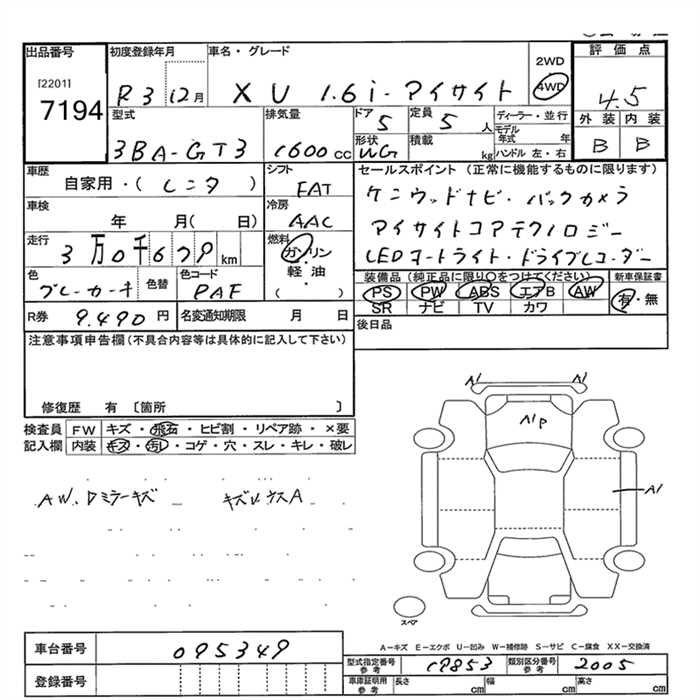 出品番号
[2201]
7194
初度登録年月
R3 12月
車名・グレード
XU 1.6i-アイサイト
2WD
4WD
評価点
4.5
外装 内装
B B
型式
3BA-GT3
排気量
1600 cc
ドア
5
定員
5 人
ディーラー・並行
モデル年式 年
形状
WG
積載
kg
ハンドル 左・右
車歴
自家用・( レンタ )
シフト
FAT
セールスポイント (正常に機能するものに限ります)
ケンウッドナビ・バックカメラ
アイサイトコアテクノロジー
LEDオートライト・ドライブレコーダー
車検
年 月( 日)
冷房
AAC
走行
3万0千679 km
燃料
ガソリン
軽油
( ・ )
色
ブレーカーキ
色替
色コード
PAF
装備品 (純正品に限り○をつけてください)
PS PW ABS エアB AW
SR ナビ TV カワ
新車保証書
有・無
R券
9.490 円
名変通知期限
月 日
後日品
注意事項申告欄 (不具合内容等は具体的に記入して下さい)
修復歴 有 〔箇所 〕
検査員
記入欄
FW キズ・飛石・ヒビ割・リペア跡・×要
内装 キズ・汚レ・コゲ・穴・スレ・キレ・破レ
AW.Dミラーキズ
キズレ
A
A1
A1
A1P
A1
スペア
車台番号
095349
登録番号
A−キズ E−エクボ U−凹み W−補修跡 S−サビ C−腐食 XX−交換済
型式指定番号
参考
19853
類別区分番号
参考
2005
車庫証明用
参考
長さ cm
幅 cm
高さ cm